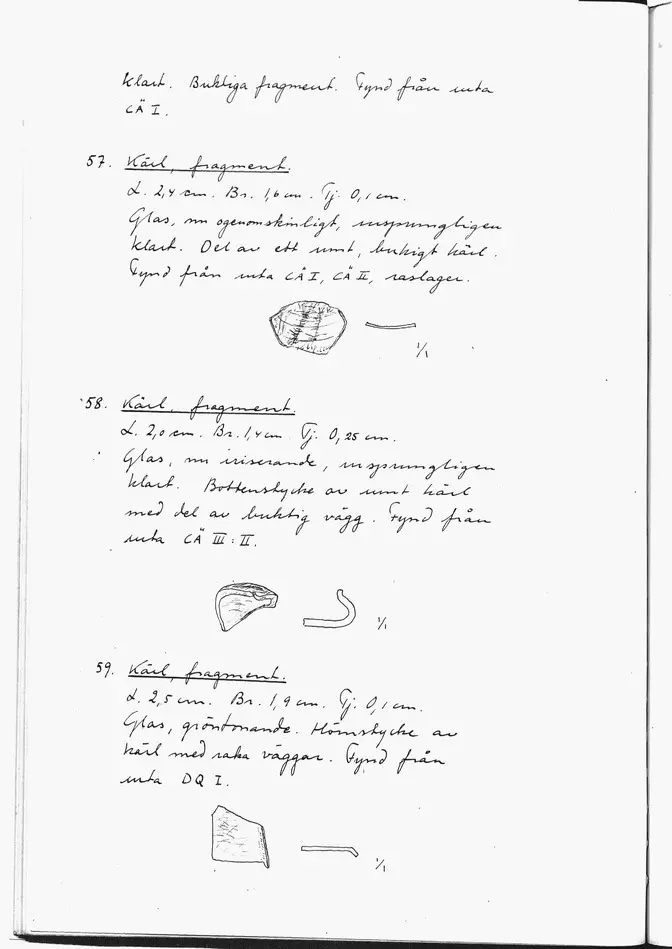 klart. Buktiga fragment. Fynd från ruta
CÄ I.
57. Kärl, fragment.
L. 2,4 cm. Br. 1,6 cm. Tj. 0,1 cm.
Glas, nu ogenomskinligt, ursprungligen
klart. Del av ett runt, bukigt kärl.
Fynd från ruta CÄ I, CÄ II, raslager.
1/1
58. Kärl, fragment.
L. 2,0 cm. Br. 1,4 cm. Tj. 0,25 cm.
Glas, nu iriserande, ursprungligen
klart. Bottenstycke av runt kärl
med del av buktig vägg. Fynd från
ruta CÄ III:II.
1/1
59. Kärl, fragment.
L. 2,5 cm. Br. 1,9 cm. Tj. 0,1 cm.
Glas, gröntonande. Hörnstycke av
kärl med raka väggar. Fynd från
ruta DQ I.
1/1